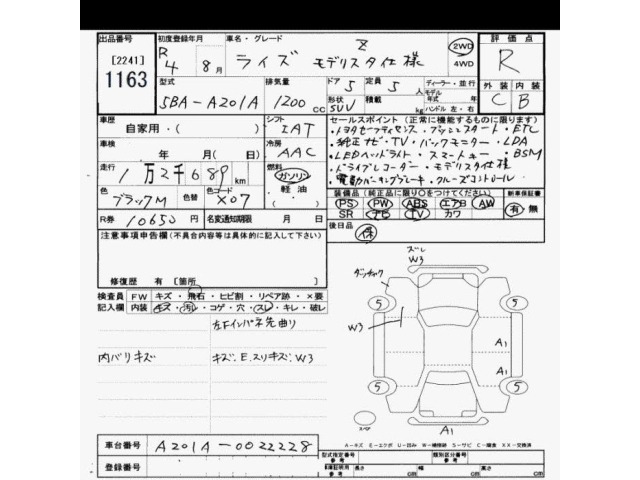 出品番号 初度登録年月 車名・グレード Z 2WD 評価点
[2241] R4 8月 ライズ モデリスタ仕様 4WD R
1163 型式 排気量 ドア 5 定員 5人 ディーラー・並行 外装 内装
5BA-A201A 1200cc 形状 SUV 積載 kg モデル年式 年 ハンドル 左・右 C B
車歴 シフト セールスポイント(正常に機能するものに限ります)
自家用・( ) IAT ・トヨタセーフティセンス・プッシュスタート・ETC
車検 冷房 ・純正ナビ・TV・バックモニター・LDA
年 月(日) AAC ・LEDヘッドライト・スマートキー・BSM
走行 燃料 ・ドライブレコーダー・モデリスタ仕様
1万2千689km ガソリン ・電動パーキングブレーキ・クルーズコントロール
色 ブラックM 色替 色コード X07 軽油・( ) 装備品(純正品に限り○をつけてください) 新車保証書
PS PW ABS エアB AW 有・無
R券 10650円 名変通知期限 月 日 SR ナビ TV カワ
注意事項申告欄(不具合内容等は具体的に記入して下さい) 後日品 保
ズレ
W3
ダッシュチャク
修復歴 有[箇所 ]
検査員 FW キズ・飛石・ヒビ割・リペア跡・×要 5 5
記入欄 内装 キズ・汚レ・コゲ・穴・スレ・キレ・破レ
左Fインパネ先曲り W3
A1
内バリキズ キズ、E、スリキズ、W3 A1
5 5
スペア A1
A-キズ E-エクボ U-凹み W-補修跡 S-サビ C-腐食 XX-交換済
車台番号 A201A-0022228 型式指定番号 参考 類別区分番号 参考
登録番号 車庫証明用 参考 長さ cm 幅 cm 高さ cm